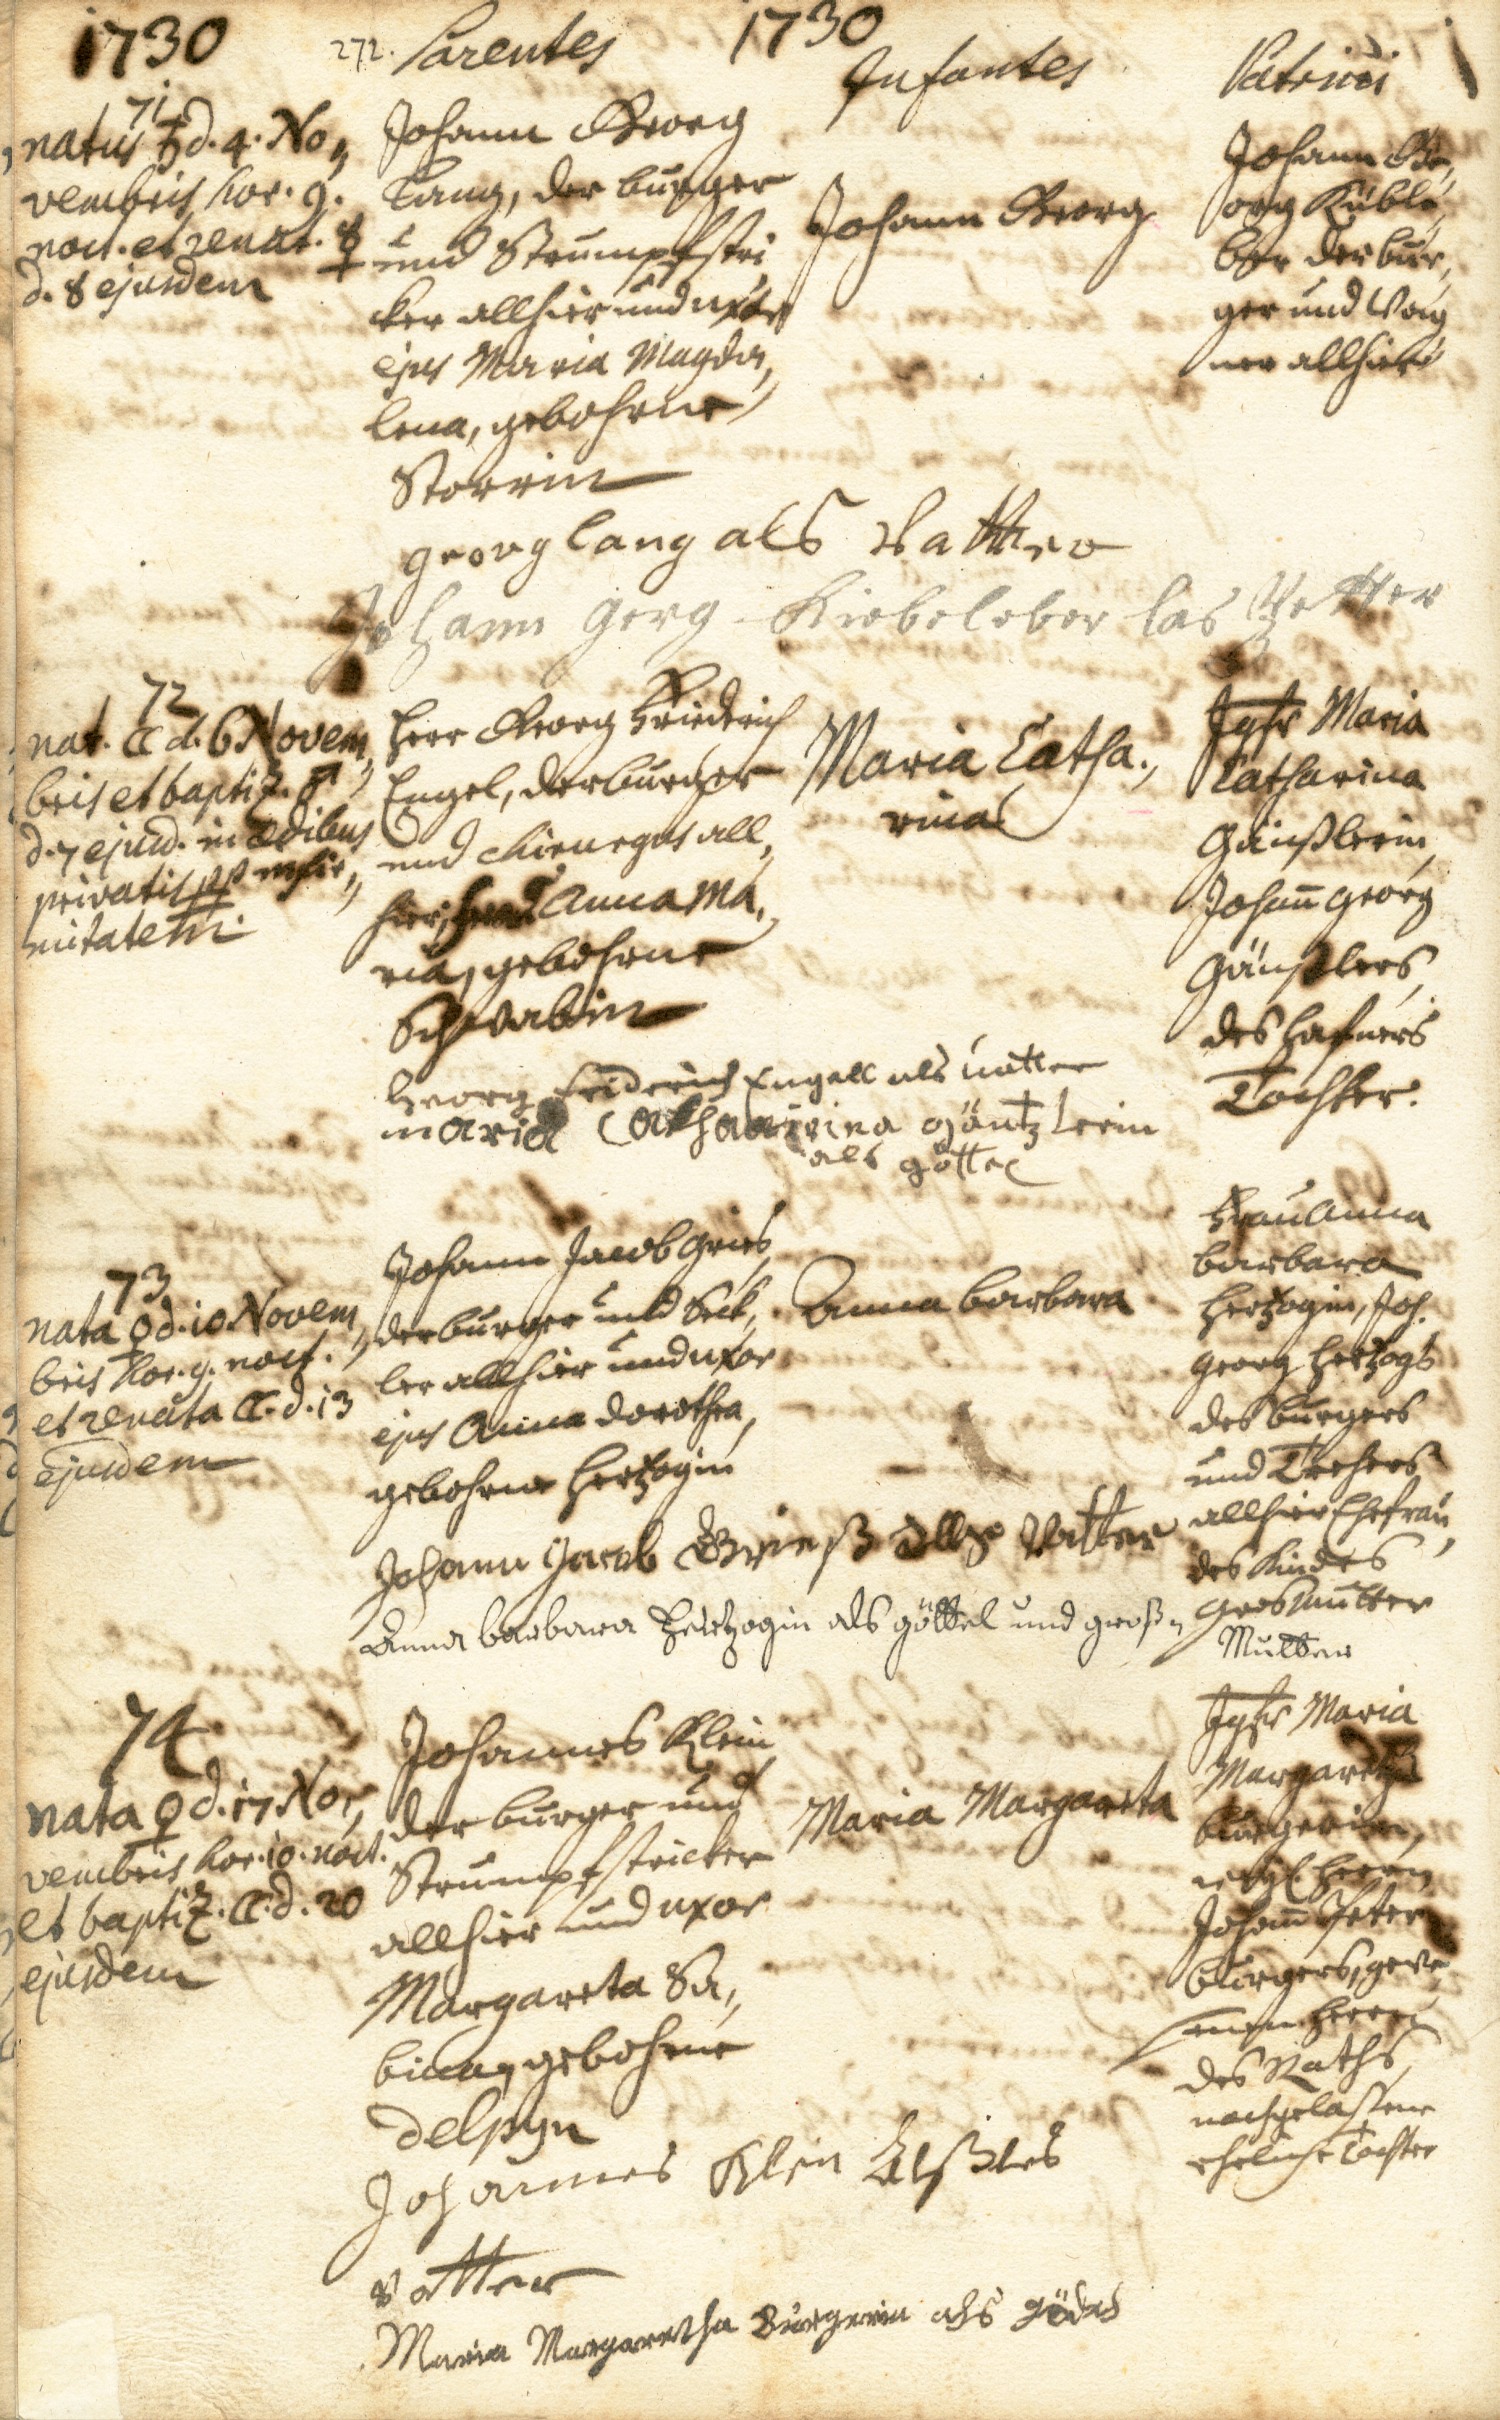 1730
272. Parentes
1730
Infantes
Patrini
71
natus ♄ d. 4. No„
vembris hor. 9.
noct. et renat. ☿
d. 8 ejusdem
Johann Georg
Lang, der burger
und Strumpfstri
cker allhier und uxor
ejus Maria Magda„
lena, gebohrne
Storrin
Johann Georg
Johann Ge„
org Küble„
ber der bur„
ger und Wag
ner allhier
georg lang als Vatter
Johann Gerg Kiebeleber las Petter
72
nat. ☾ d. 6 Novem„
bris et baptiz. ♂
d. 7 ejusd. in ædibus
privatis pp infir„
mitatem
Herr Georg Friederich
Engel, der burger
und chirurgus all„
hier, Anna Ma„
ria, gebohrne
Schwabin
Maria Catha„
rina
Jgfr Maria
Catharina
Gänßlerin,
Johañ Georg
Gänßlers,
des Hafners
Tochter.
Georg Friderich Engell als Vatter
maria Catharina gäntzlerin
als göttel
73
nata ♀ d. 10. Novem„
bris hor. 9. noct.
et renata ☾. d. 13
ejusdem
Johann Jacob Gries,
der burger und Seck„
ler allhier und uxor
ejus Anna Dorothea,
gebohrne Hertzogin
Anna barbara
Frau Anna
barbara
Hertzogin, Joh.
Georg Hertzogs
des burgers
und Drehers
allhier Ehefrau,
des Kindes
Grosmutter
Johann Jacob Grieß allß Vatter
Anna barbara Hertzogin als göttel und groß„
Mutter
74
nata ♀ d. 17 No„
vembris hor. 10. noct.
et baptiz. ☾. d. 20
ejusdem
Johannes Klein
der burger und
Strumpfstricker
allhier und uxor
Margareta Sa„
bina, gebohrne
Delpyn
Maria Margareta
Jgfr Maria
Margaretha
burgerin,
weyl. Herrn
Johañ Peter
burgers, gewe„
senen Herrn
des Raths,
nachgelassene
eheliche Tochter
Johannes Klein Alß des
vatter
Maria Margaretha Burgerin als gödel